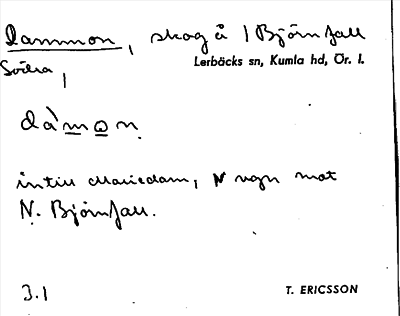 Dammon, skog å 1 Björnfall
Södra,
Lerbäcks sn, Kumla hd, Ör. l.
dàmon
intill Mariedam, N vgn mot
N. Björnfall.
3.1
T. ERICSSON